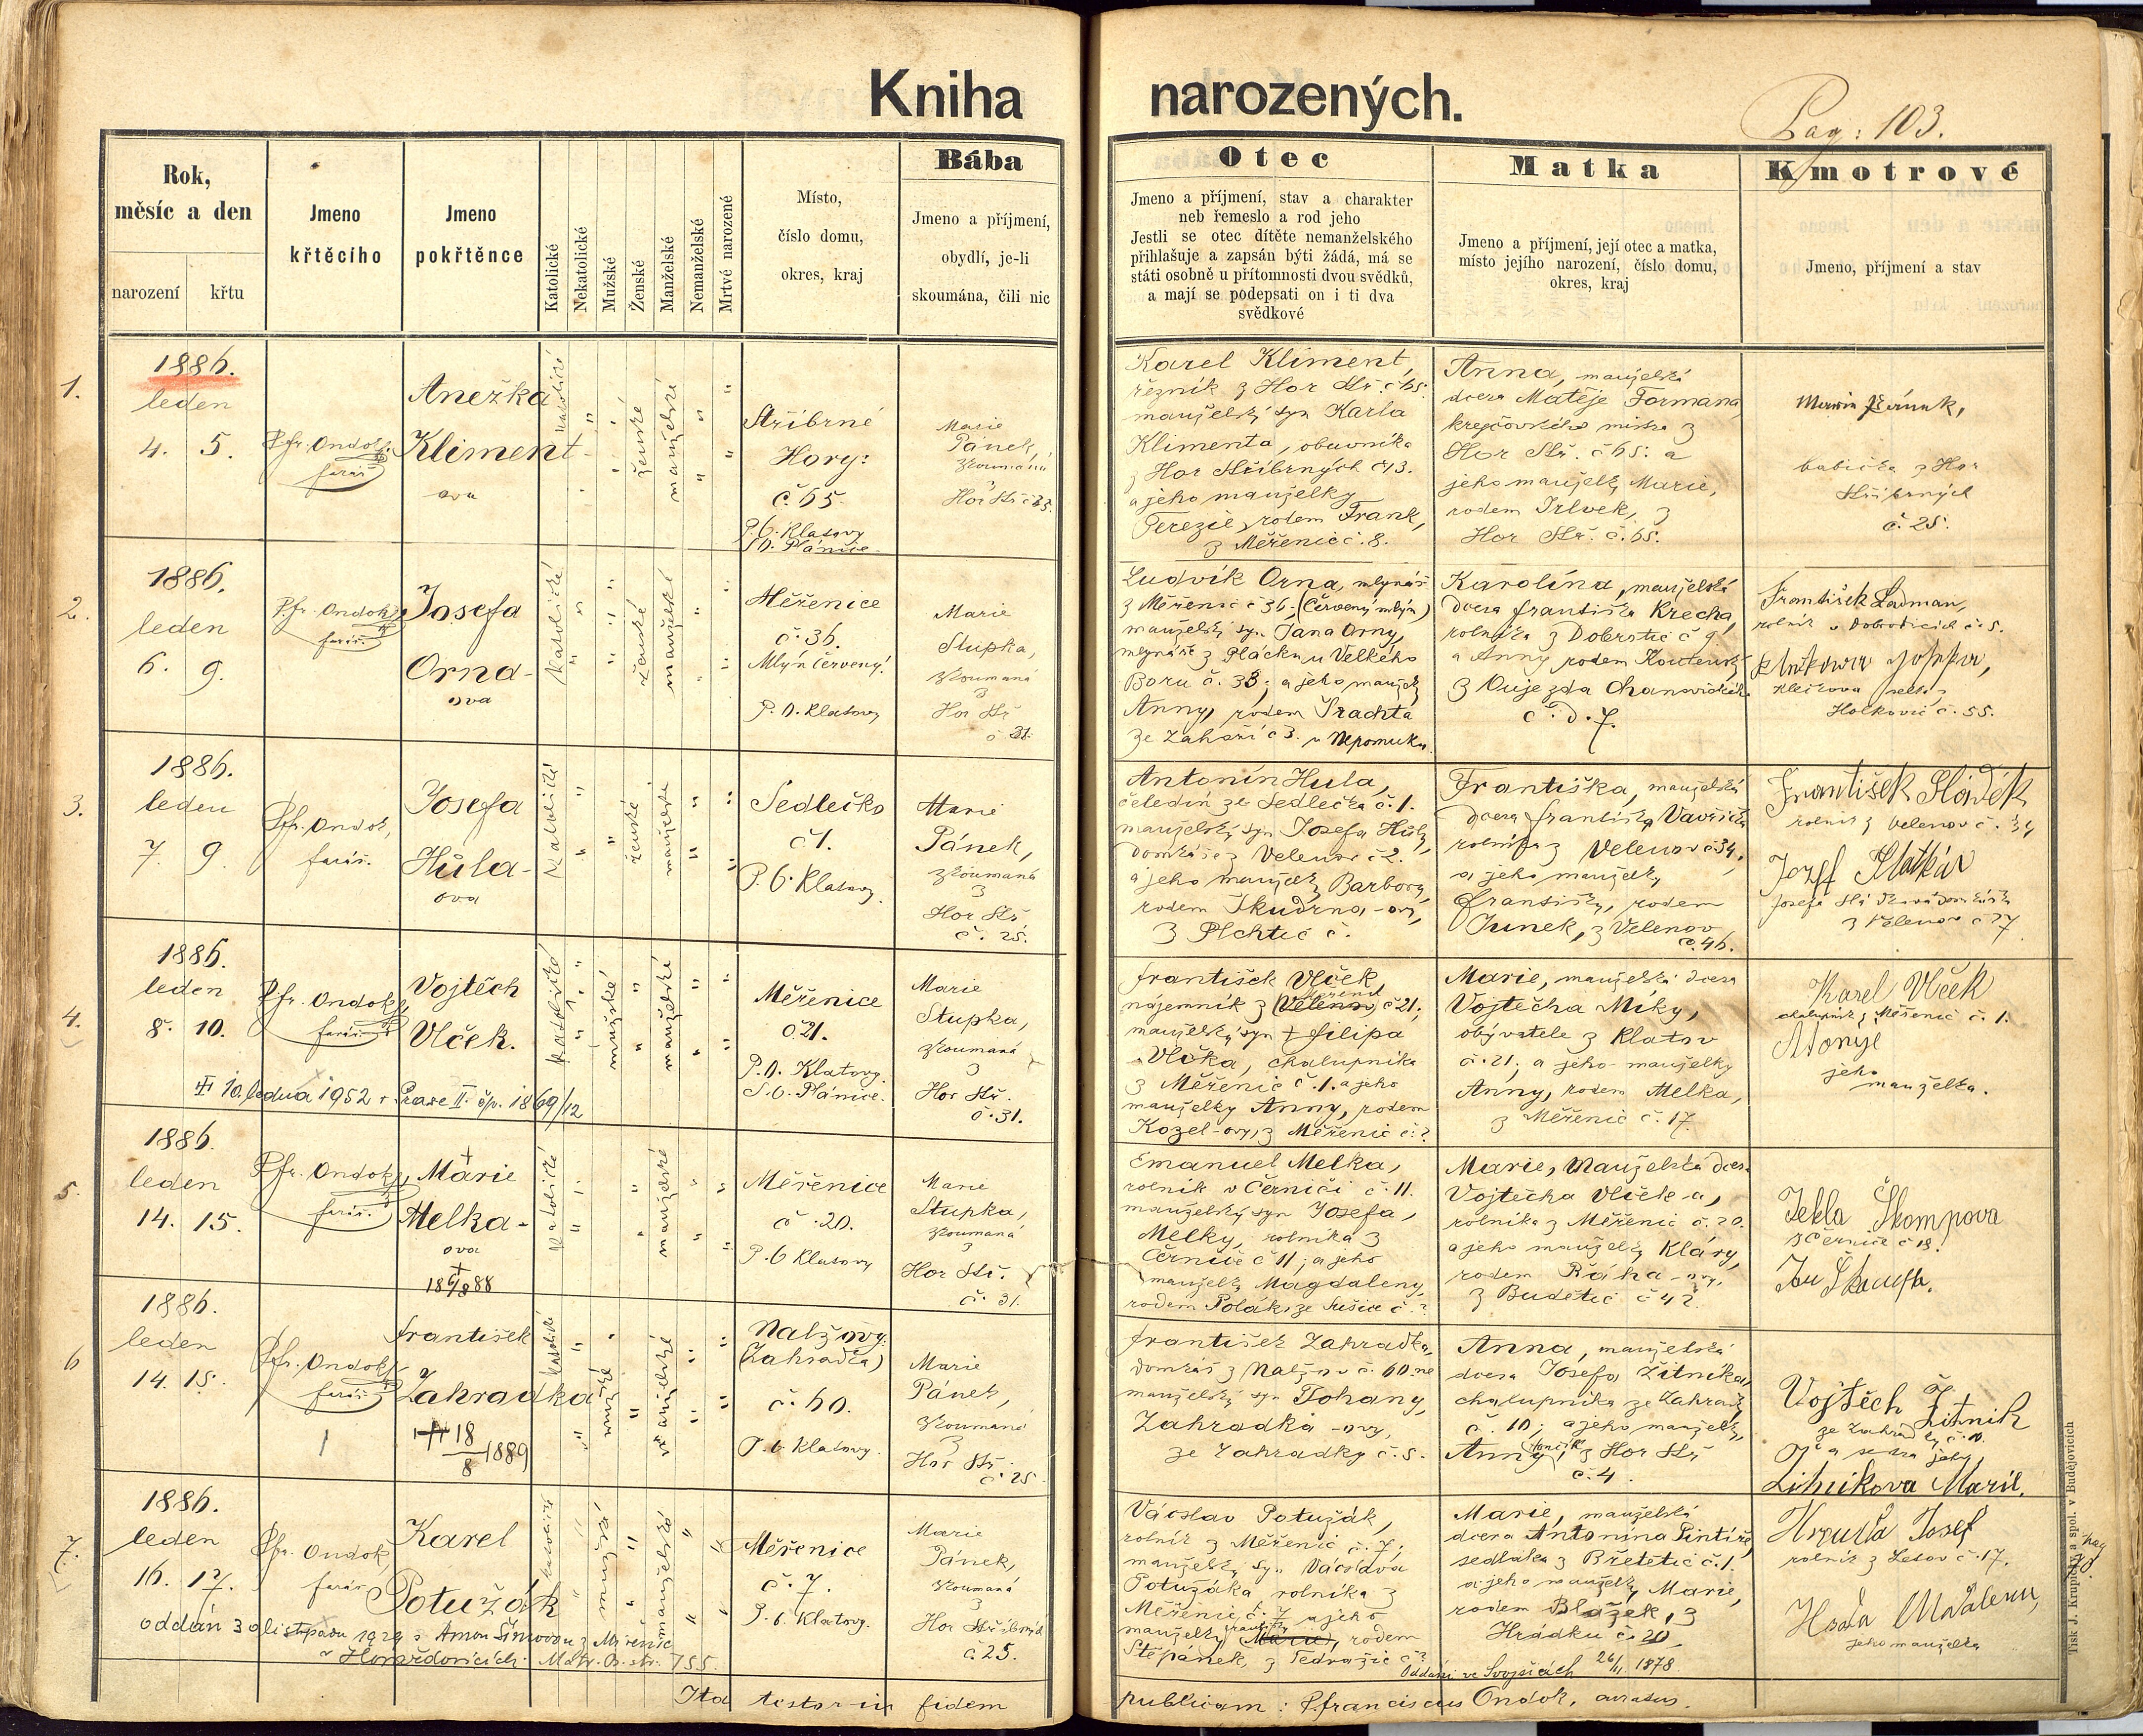 Kniha narozených.
Pag: 103.
Rok,
měsíc a den
narození křtu
Jmeno
křtěcího
Jmeno
pokřtěnce
Katolické
Nekatolické
Mužské
Ženské
Manželské
Nemanželské
Mrtvé narozené
Místo,
číslo domu,
okres, kraj
Bába
Jmeno a příjmení,
obydlí, je-li
skoumána, čili nic
Otec
Jmeno a příjmení, stav a charakter
neb řemeslo a rod jeho
Jestli se otec dítěte nemanželského
přihlašuje a zapsán býti žádá, má se
státi osobně u přítomnosti dvou svědků,
a mají se podepsati on i ti dva
svědkové
Matka
Jmeno a příjmení, její otec a matka,
místo jejího narození, číslo domu,
okres, kraj
Kmotrové
Jmeno, příjmení a stav
1.
1886.
leden
4. 5.
Pfr. Ondok,
farář
Anežka
Kliment-
ova
katolické
ženské
manželské
Stříbrné
Hory:
č 65
P. O. Klatovy
S. O. Plánice.
Marie
Pánek,
zkoumána
z
Hor Stř č 25.
Karel Kliment,
řezník z Hor Stř. č 65:
manželský syn Karla
Klimenta, obuvníka
z Hor Stříbrných č 13.
a jeho manželky
Terezie, rodem Frank,
z Měřenic č. 8.
Anna, manželská
dcera Matěje Formana
krejčovského mistra z
Hor Stř. č 65: a
jeho manželky Marie,
rodem Vlček, z
Hor Stř. č. 65.
babička z Hor
Stříbrných
č. 25.
2.
1886.
leden
6. 9.
Pfr. Ondok,
farář.
Josefa
Orna-
ova
katolické
ženské
manželské
Měřenice
č. 36.
Mlýn červený.
P. O. Klatovy
Marie
Stupka,
zkoumaná
z
Hor Stř
č 31.
Ludvík Orna, mlynář
z Měřenic č 36- (Červený mlýn)
manželský syn Jana Orny,
mlynáře z Plácku u Velkého
Boru č. 38; a jeho manželky
Anny, rodem Šrachta
ze Zahoří č 3. u Nepomuku.
Karolína, manželská
dcera Františka Krecha,
rolníka z Dobrotic č 9
a Anny rodem
z Oujezda Chanovického
č. d. 7.
František Ladman,
rolník v Dobroticích č. 5.
Holkovic č. 55.
3.
1886.
leden
7. 9.
Pfr. Ondok,
farář.
Josefa
Hůla-
ova
katolické
ženské
manželské
Sedlečko
č 1.
P. O. Klatovy.
Marie
Pánek,
zkoumaná
z
Hor Stř
č. 25.
Antonín Hula,
čeledín ze Sedlečka č. 1.
manželský syn Josefa Hůly,
domkáře z Velenov č 2.
a jeho manželky Barbory,
rodem Skudrna-ovy,
z Plchtic č.
Františka, manželská
dcera Františka Vavřička
rolníka z Velenov č 34,
a jeho manželky
Františky, rodem
Junek, z Velenov
č. 46.
František Sládek
rolník z Velenov č. 34
z Velenov č 27
4.
1886.
leden
8. 10.
Pfr. Ondok,
farář
Vojtěch
Vlček.
katolické
mužské
manželské
Měřenice
č 21.
P. O. Klatovy.
S. O. Plánice.
Marie
Stupka,
zkoumaná
z
Hor Stř.
č. 31.
František Vlček,
nájemník z Velenov Měřenic č 21;
manželský syn † Filipa
Vlčka, chalupníka
z Měřenic č. 1. a jeho
manželky Anny, rodem
Kozel-ovy, z Měřenic č. ?
Marie, manželská dcera
Vojtěcha Míky,
obývatele z Klatov
č. 21; a jeho manželky
Anny, rodem Melka,
z Měřenic č. 17.
Karel Vlček
chalupník z Měřenic č. 1.
jeho
manželka.
10. ledna 1952 v Praze II. čp. 1869/12
5.
1886.
leden
14. 15.
Pfr. Ondok,
farář.
†
Marie
Melka-
ova
†
katolické
manželské
Měřenice
č. 20.
P. O Klatovy
Marie
Stupka,
zkoumaná
z
Hor Stř.
č. 31.
Emanuel Melka,
rolník v Černíči č. 11.
manželský syn Josefa,
Melky, rolníka z
Černíče č 11; a jeho
manželky Magdaleny,
rodem Polák, ze Sušice č. ?
Marie, manželská dcera
Vojtěcha Vlček-a,
rolníka z Měřenic č. 20.
a jeho manželky Kláry,
rodem Bláha-ovy,
z Budětic č 42.
Tekla Škompova
z Černíče č 18.
6
1886.
leden
14. 15.
Pfr. Ondok,
farář
František
Zahradka
18/8 1889
katolické
mužské
Nalžovy.
(Zahrádka)
č. 60.
P. O. Klatovy.
Marie
Pánek,
zkoumaná
z
Hor Stř.
č 25
František Zahradka,
domkář z Nalžov č. 60 ne
manželský syn Johany,
Zahradka-ovy,
ze Zahradky č. 5.
Anna, manželská
dcera Josefa Žitníka,
chalupníka ze Zahrádky
č. 10; a jeho manželky,
Anny, z Hor Stř
č. 4.
Vojtěch Žitnik
ze Zahrádky č. 10.
a sestra jeho,
7.
1886.
leden
16. 17.
Pfr. Ondok,
farář
Karel
Potužák
katolické
mužské
manželské
Měřenice
č. 7.
P. O. Klatovy.
Marie
Pánek,
zkoumaná
z
Hor Stříbrných
č 25.
Václav Potužák,
rolník z Měřenic č. 7;
manželský syn Václava
Potužáka rolníka z
Měřenic č. 7 a jeho
manželky Marie, rodem
Štěpánek, z Tedražic č ?
Marie, manželská
dcera Antonína Pintíře,
sedláka z Břetětic č. 1.
a jeho manželky Marie,
rodem Blažek, z
Hrádku č. 20
Hrzuďa Josef
rolník z Letov č. 17.
jeho manželka
oddán 30 listopadu 1929 s Annou Šimovou z Měřenic
v Horažďovicích. Matr. O. str. 155.
Oddáni ve Svojšicích 26/11 1878.
Ita testor in fidem
publicam: P franciscus Ondok, curatus.
Tisk J. Krupičky a spol. v Budějovicích